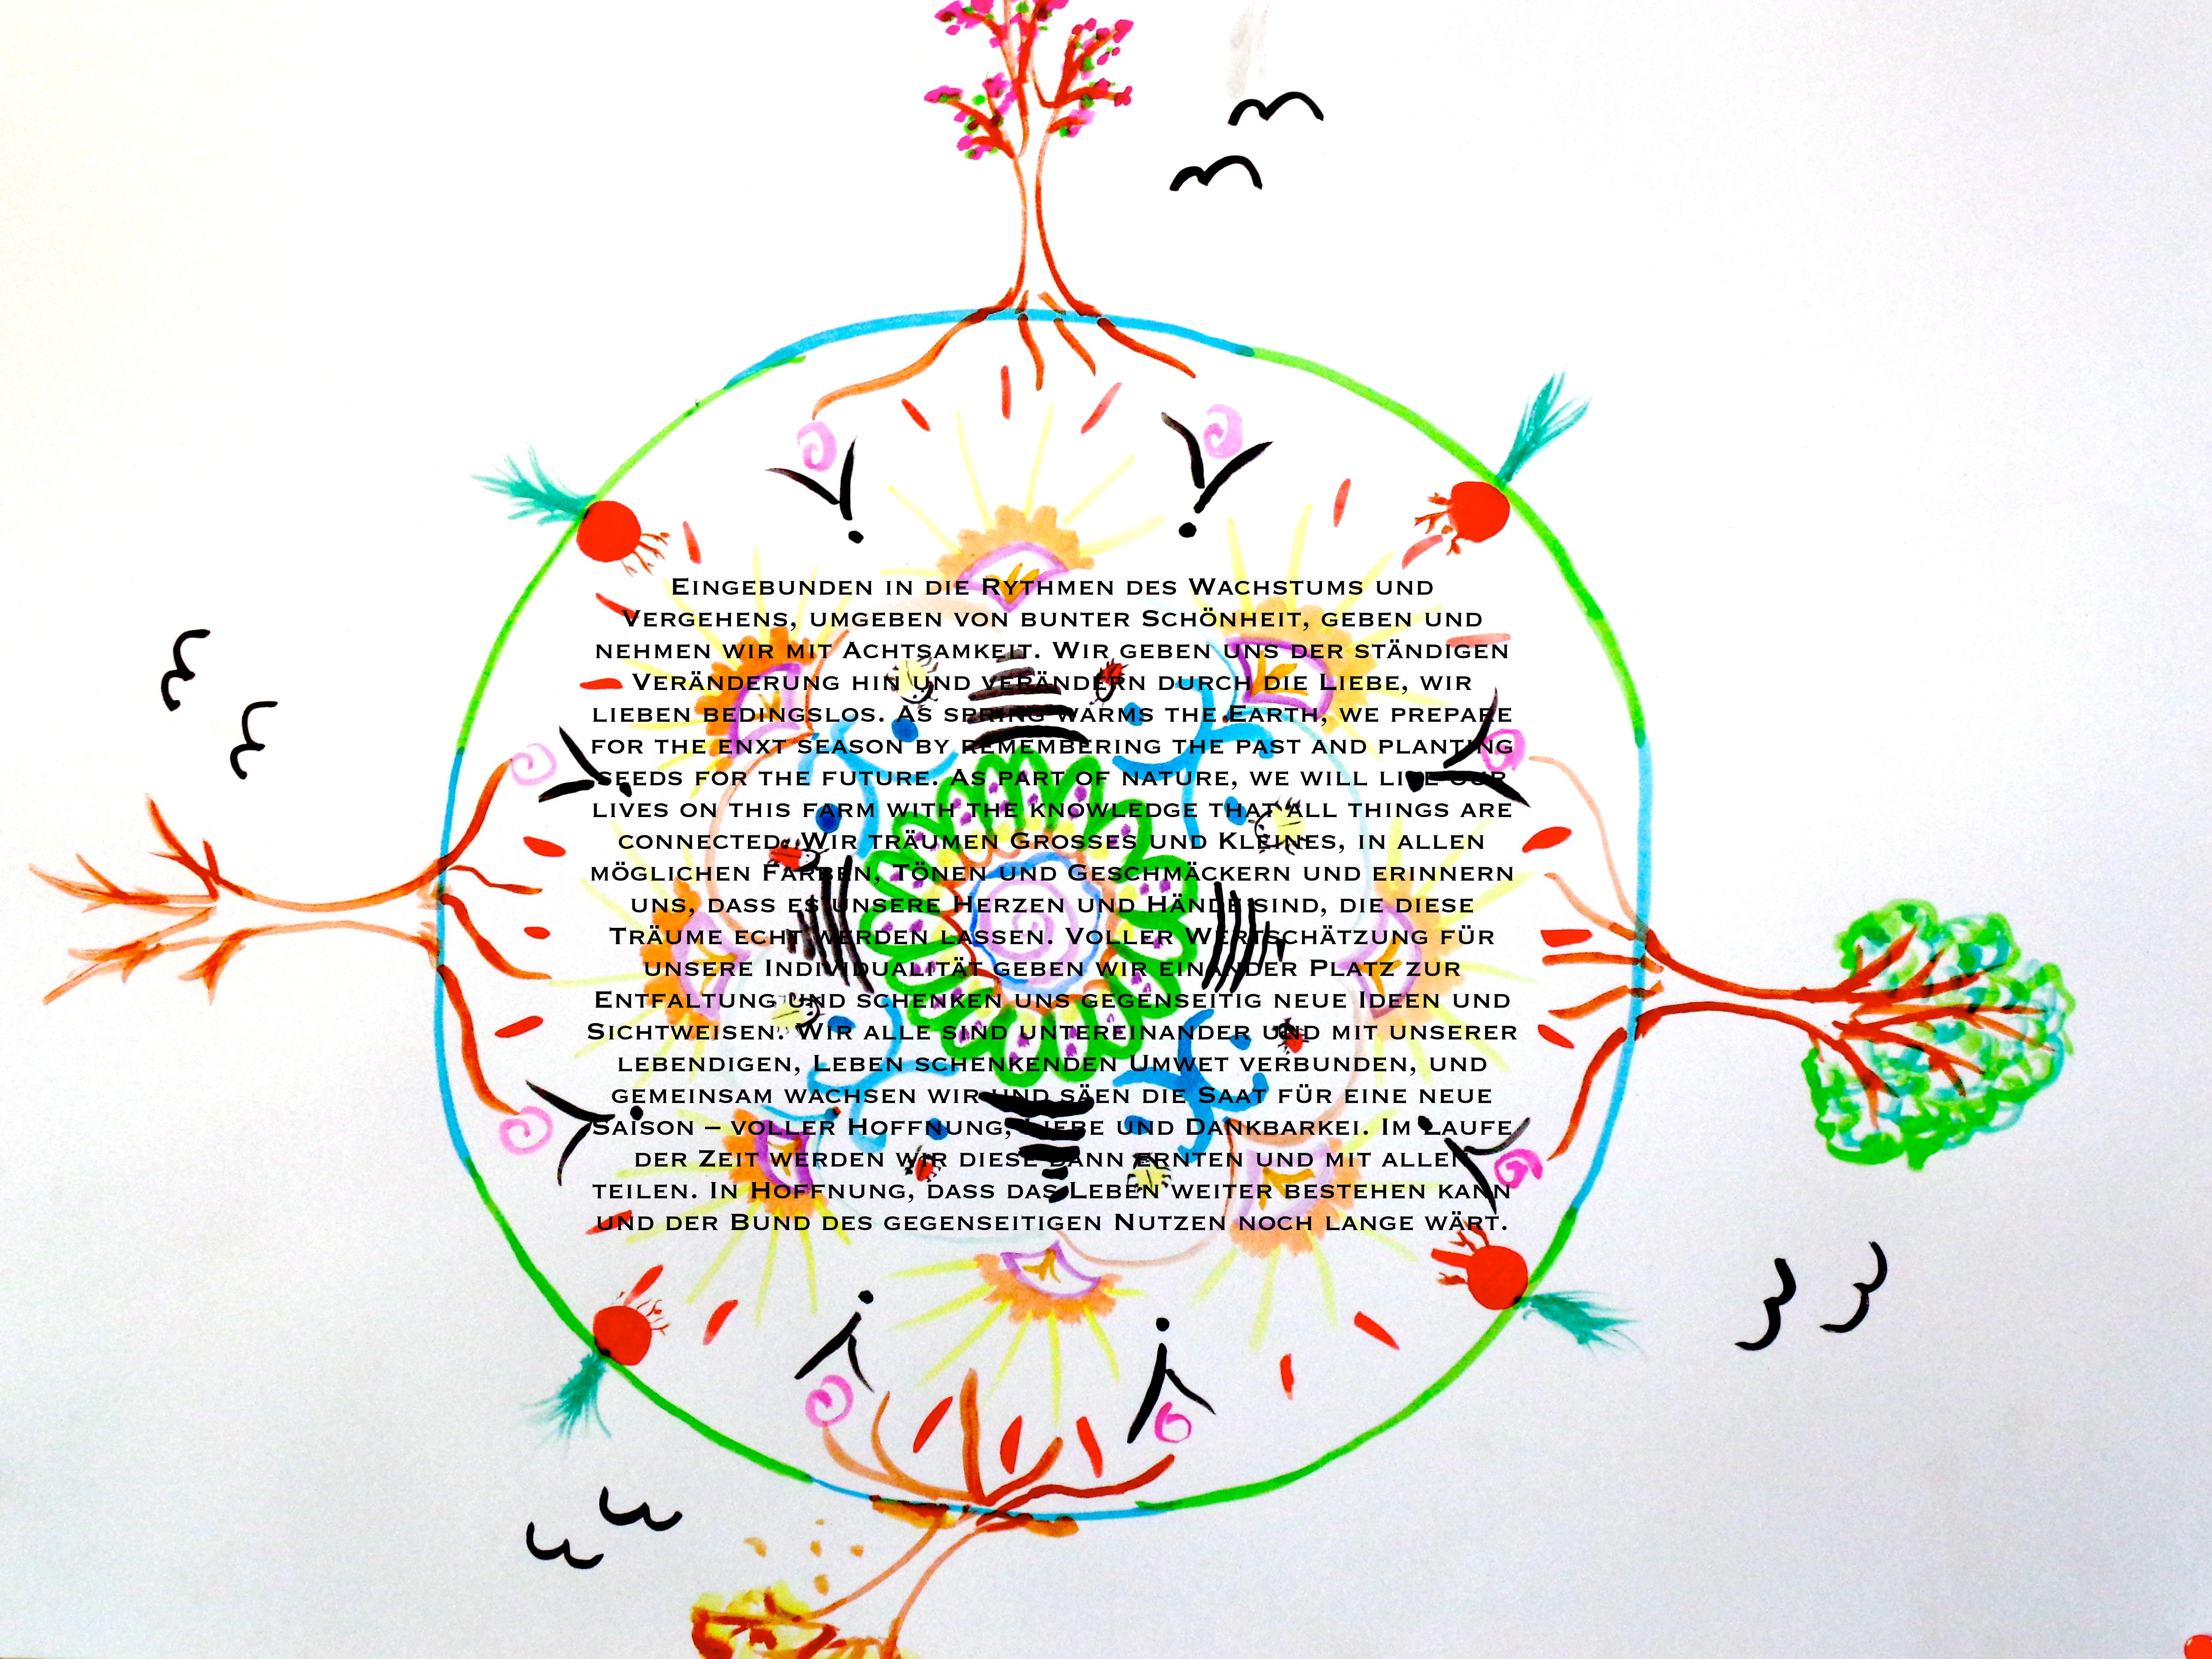 Eingebunden in die Rythmen des Wachstums und
Vergehens, umgeben von bunter Schönheit, geben und
nehmen wir mit Achtsamkeit. Wir geben uns der ständigen
Veränderung hin und verändern durch die Liebe, wir
lieben bedingslos. As spring warms the Earth, we prepare
for the enxt season by remembering the past and planting
seeds for the future. As part of nature, we will live our
lives on this farm with the knowledge that all things are
connected. Wir träumen Grosses und Kleines, in allen
möglichen Farben, Tönen und Geschmäckern und erinnern
uns, dass es unsere Herzen und Hände sind, die diese
Träume echt werden lassen. Voller Wertschätzung für
unsere Individualität geben wir einander Platz zur
Entfaltung und schenken uns gegenseitig neue Ideen und
Sichtweisen. Wir alle sind untereinander und mit unserer
lebendigen, Leben schenkenden Umwet verbunden, und
gemeinsam wachsen wir und säen die Saat für eine neue
Saison – voller Hoffnung, Liebe und Dankbarkei. Im Laufe
der Zeit werden wir diese dann ernten und mit allen
teilen. In Hoffnung, dass das Leben weiter bestehen kann
und der Bund des gegenseitigen Nutzen noch lange wärt.